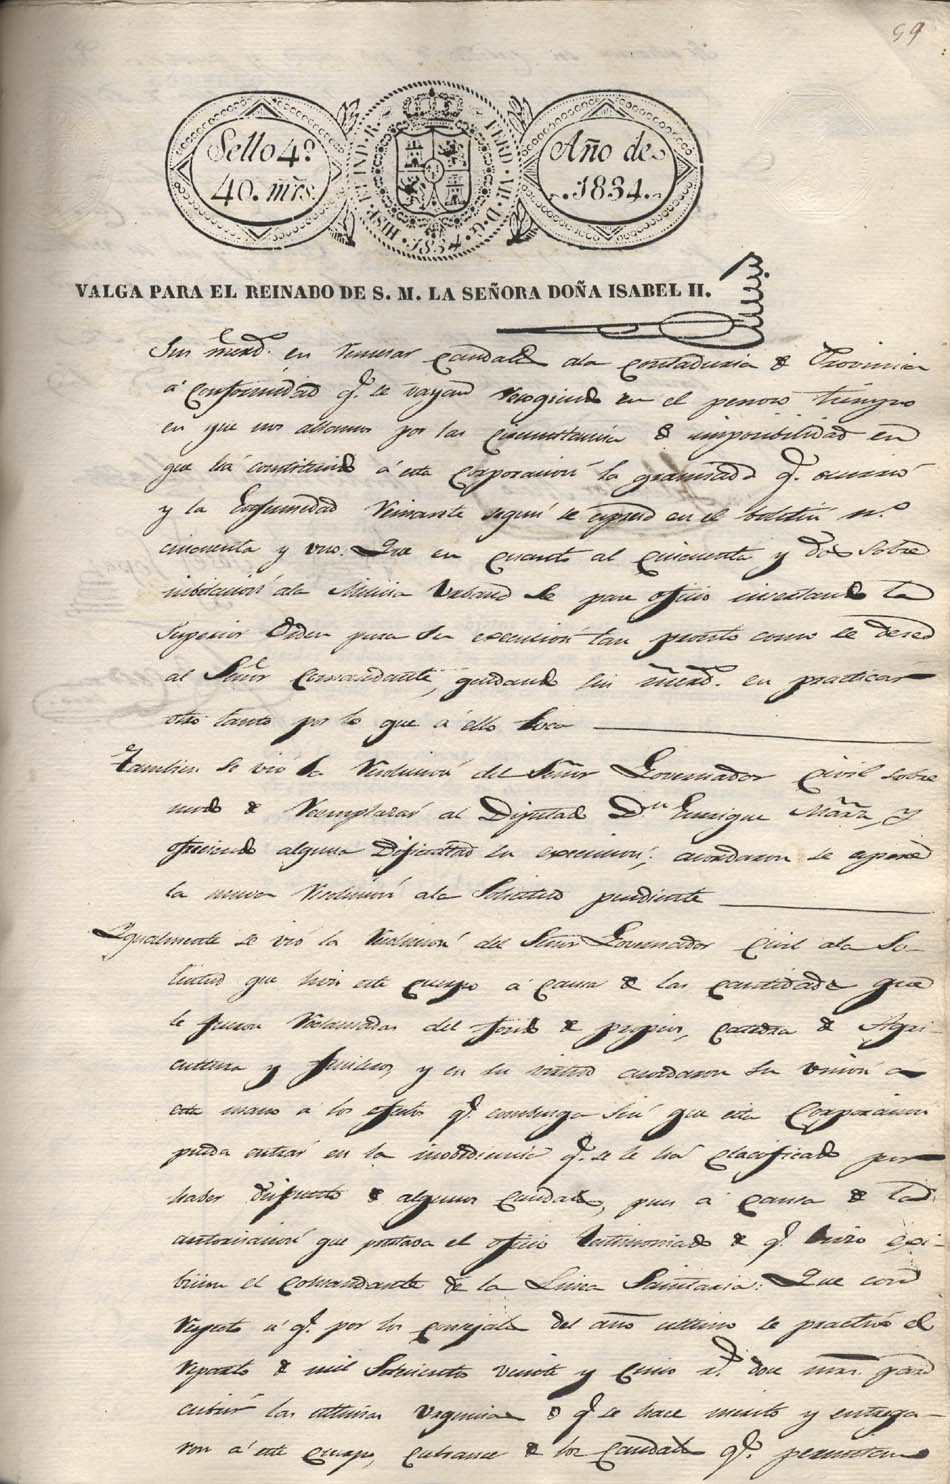 59
Sello 4º
40. mrs.
HISP. ET IND. R. FERD. VII. D. G. 1834.
Año de
1834.
VALGA PARA EL REINADO DE S. M. LA SEÑORA DOÑA ISABEL II.
Sus merd.s en caudales ala contaduria de Provincia
á conformidad q.e se vayan recogiendo en el penoso tiempo
en que nos allamos por las circunstancias de imposibilidad en
que há constituido á esta Corporacion la q.e ocurrió
y la Enfermedad Reinante segun se espresó en el boletin n.º
cincuenta y uno. Que en cuanto al cincuenta y dos sobre
ala Milicia Urbana se pase oficio insertando la
Superior Orden para su execucion tan pronto como se
al Señor Comandante, quedando sus merd.s en practicar
otro tanto por lo que á ello toca
Tambien se vió la resolucion del Señor Governador Civil sobre
modo de reemplazar al Diputado Dn Enrique y
ofreciendo alguna Dificultad su execucion; acordaron se
la nueva resolucion ala Solicitud pendiente
Igualmente se vió la resolucion del Señor Governador Civil ala So-
licitud que hizo este cuerpo á causa de las cantidades que
le fueron reclamadas del fondo de propios, catedra de Agri-
cultura y y en su virtud acordaron su union a
este mano á los efectos q.e convenga sin que esta Corporacion
pueda entrar en la q.e se le há clasificado por
haber dispuesto de algunos caudales, pues á causa de la
autorisacion que prestava el oficio testimoniado de q.e hizo exi-
bicion el Comandante de la Linea Sanitaria: Que con
respeto á q.e por los concejales del año ultimo se practicó el
reparto de mil Setecientos veinte y cinco r.s doce mrs. para
cubrir las ultimas urgencias de q.e se hace merito y entrega-
ron á este cuerpo, de los caudales q.e